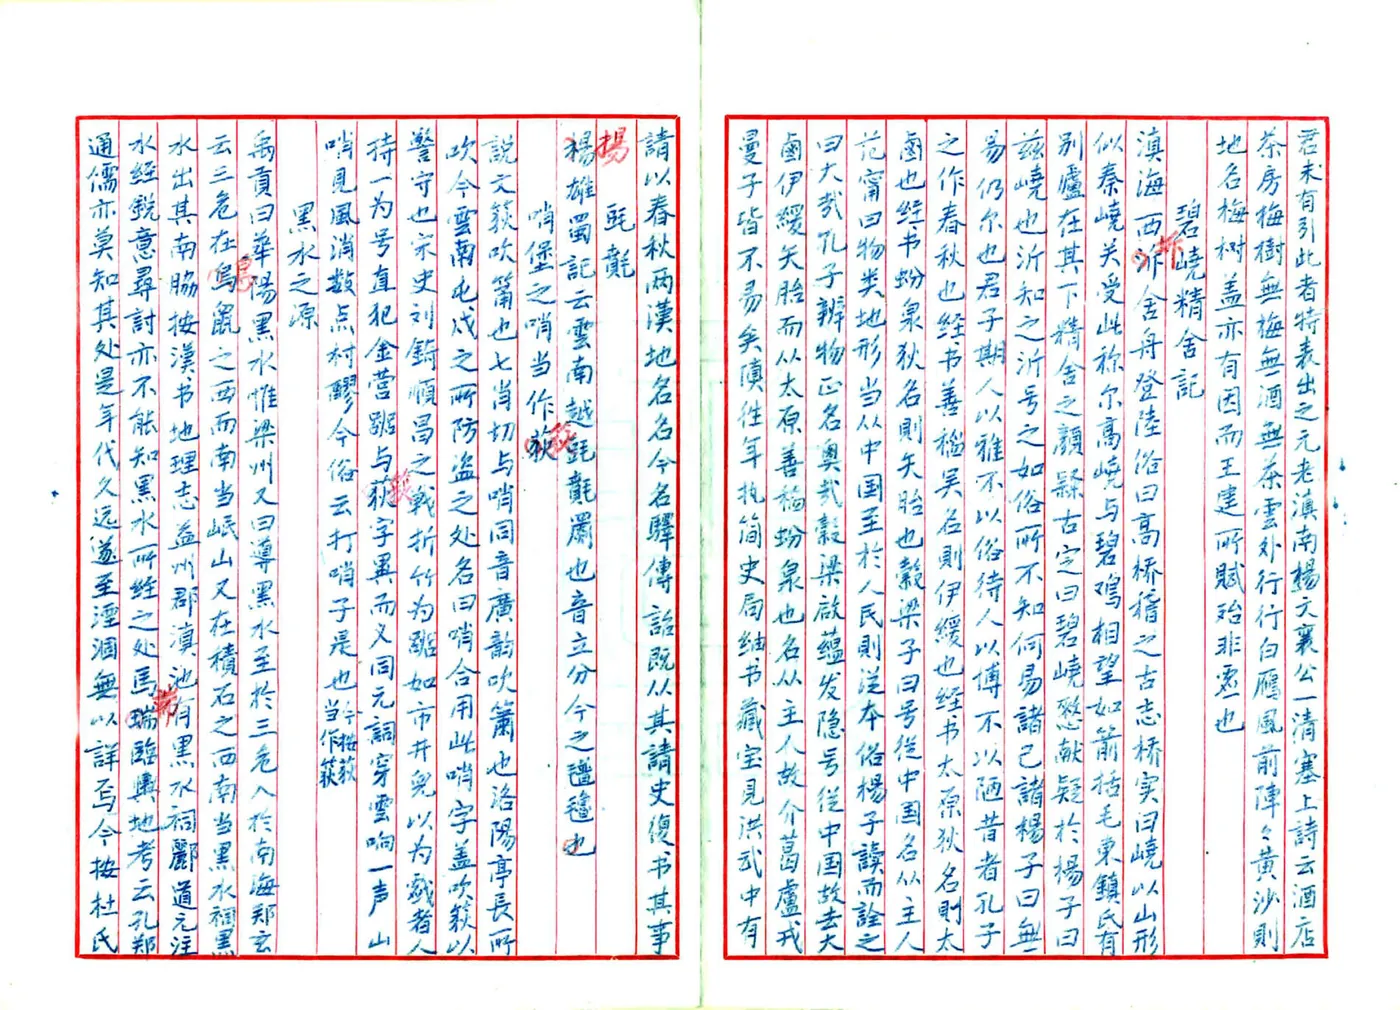 君未有引此者特表出之元老滇南楊文襄公一清塞上詩云酒店
茶房梅樹無梅無酒無茶雲外行行白鴈風前陣々黄沙則
地名梅树盖亦有因而王建所賦殆非虚也
碧嶢精舍記
滇海西泝舍舟登陸俗曰高桥稽之古志桥实曰嶢以山形
拆
似秦嶢关受此祢尔高嶢与碧鸡相望如箭括毛束鎮氏有
别廬在其下精舍之顔繇古字曰碧嶢憨献疑於楊子曰
兹嶢也沂知之沂号之如俗所不知何易諸已諸楊子曰無
易仍尔也君子期人以雅不以俗待人以博不以陋昔者孔子
之作春秋也经书善稲吴名則伊緩也经书太原狄名則太
鹵也经书蚡泉狄名則矢胎也榖梁子曰号從中国名从主人
范甯曰物类地形当从中国至於人民則從本俗楊子讀而詮之
曰大哉孔子辨物正名奥哉榖梁啟蘊发隐号從中国故去大
鹵伊緩矢胎而从太原善稲蚡泉也名从主人故介葛盧戎
曼子皆不易矣隫徃年执简史局紬书藏宝見洪武中有
請以春秋两漢地名名今名驛傳詔既从其請史復书其事
毾㲪
揚
楊雄蜀記云雲南越毾㲪罽也音立分今之氆氇也
哨堡之哨当作荻
篍
説文荻吹筩也七肖切与哨同音廣韵吹簫也洛陽亭長所
吹今雲南屯戍之所防盗之处名曰哨合用此哨字盖吹荻以
警守也宋史刘錡順昌之戦折竹为䠞如市井兒以为戯者人
持一为号直犯金营䠞与荻字異而义同元詞穿雲响一声山
篍
哨見風消数点村醪今俗云打哨子是也今按荻当作荻
黑水之源
禹貢曰華陽黑水惟梁州又曰導黑水至於三危入於南海郑玄
云三危在鸟鼠之西而南当岷山又在積石之西南当黑水祠黑
水出其南脇按漢书地理志益州郡滇池有黑水祠酈道元注
水经銳意尋討亦不能知黑水所经之处馬瑞臨輿地考云孔郑
通儒亦莫知其处是年代久远遂至湮涸無以詳焉今按杜氏